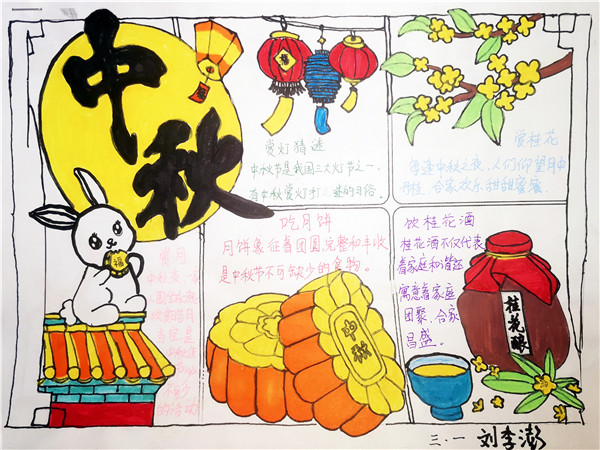 中秋
福
福
赏灯猜谜
中秋节是我国三大灯节之一,
有中秋赏灯打 谜的习俗。
赏桂花
每逢中秋之夜,人们仰望月中
丹桂,合家欢乐,甜甜蜜蜜。
赏月
吃月饼
月饼象征着团圆完整和丰收
是中秋节不可缺少的食物。
中秋
饮桂花酒
桂花酒不仅代表
着家庭和谐还
寓意着家庭
团聚、合家
昌盛。
桂花酿
三.一 刘李澎